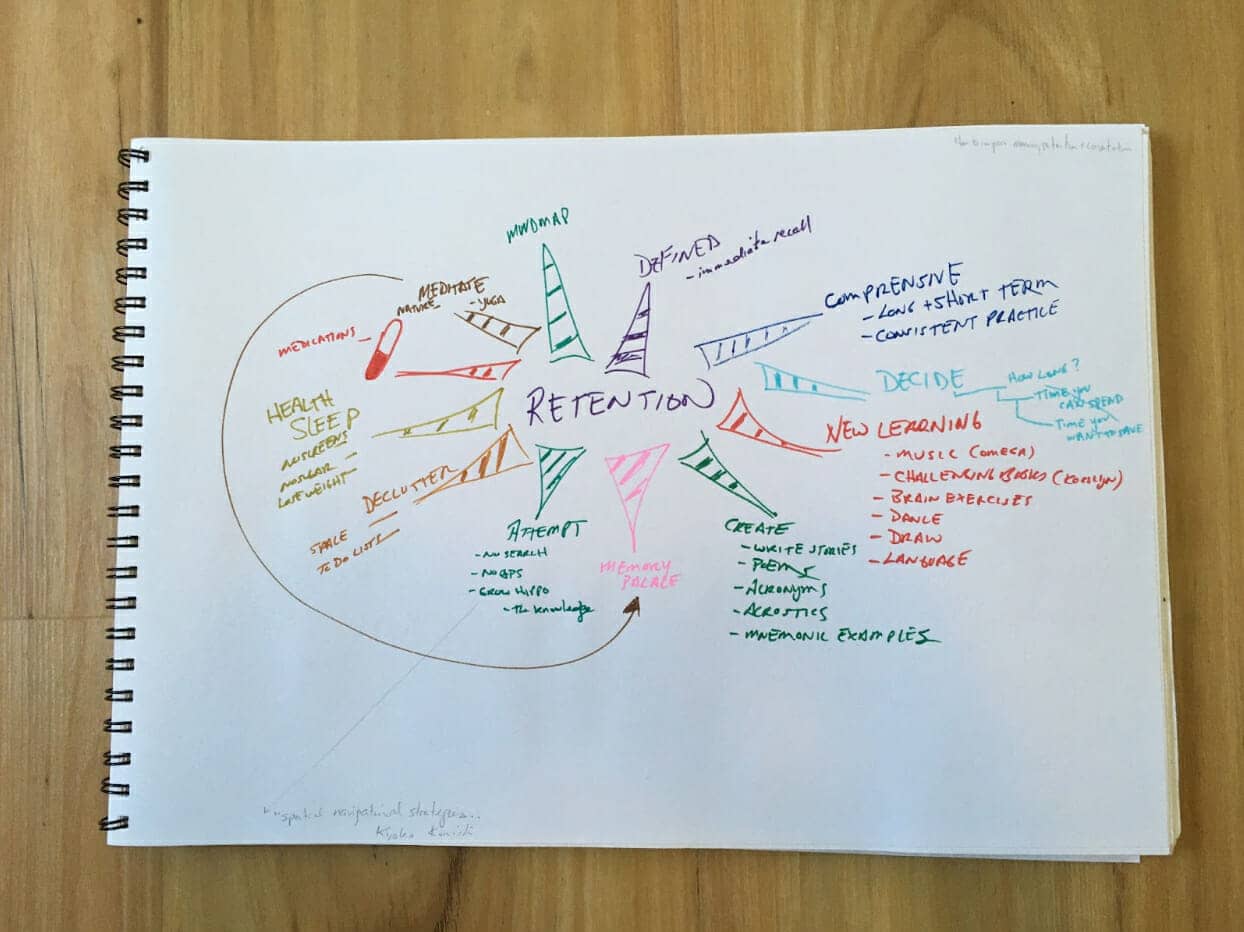 MINDMAP
DEFINED
- immediate recall
COMPRENSIVE
- LONG + SHORT TERM
- CONSISTENT PRACTICE
DECIDE
HOW LONG?
TIME YOU
CAN SPEND
TIME YOU
WANT TO SAVE
NEW LEARNING
- MUSIC (OMEGA)
- CHALLENGING BOOKS
- BRAIN EXERCISES
- DANCE
- DRAW
- LANGUAGE
CREATE
- WRITE STORIES
- POEMS
- ACRONYMS
- ACROSTICS
- MNEMONIC EXAMPLES
MEMORY
PALACE
ATTEMPT
- NO SEARCH
- NO GPS
- GROW HIPPO
- The Knowledge
DECLUTTER
SPACE
TO DO LISTS
HEALTH
SLEEP
NO SCREENS
NO SUGAR
LOSE WEIGHT
MEDICATIONS
MEDITATE
NATURE
- YOGA
RETENTION
"spatial navigational strategies...